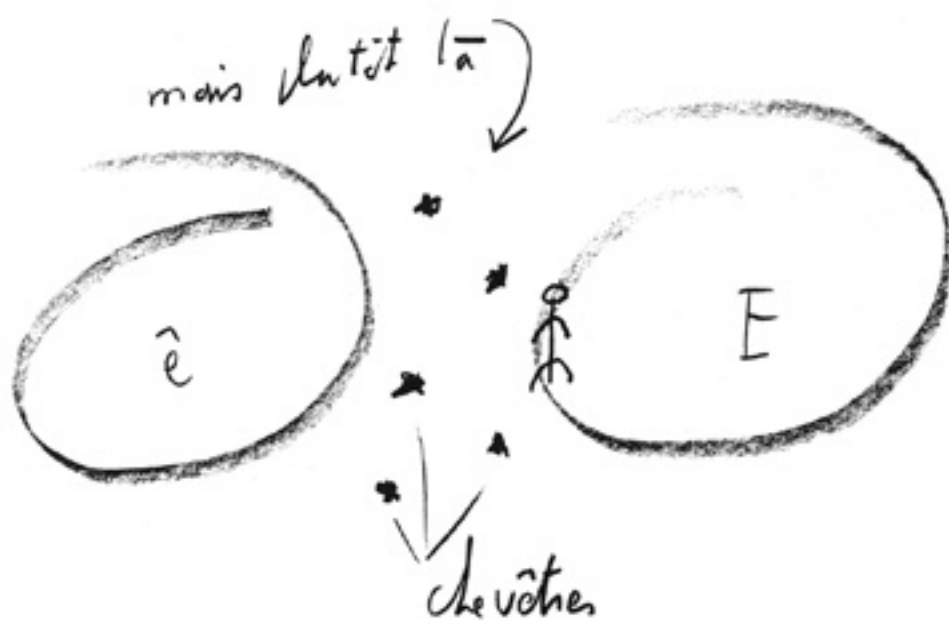 mais plutôt là
ê
E
chevêtres